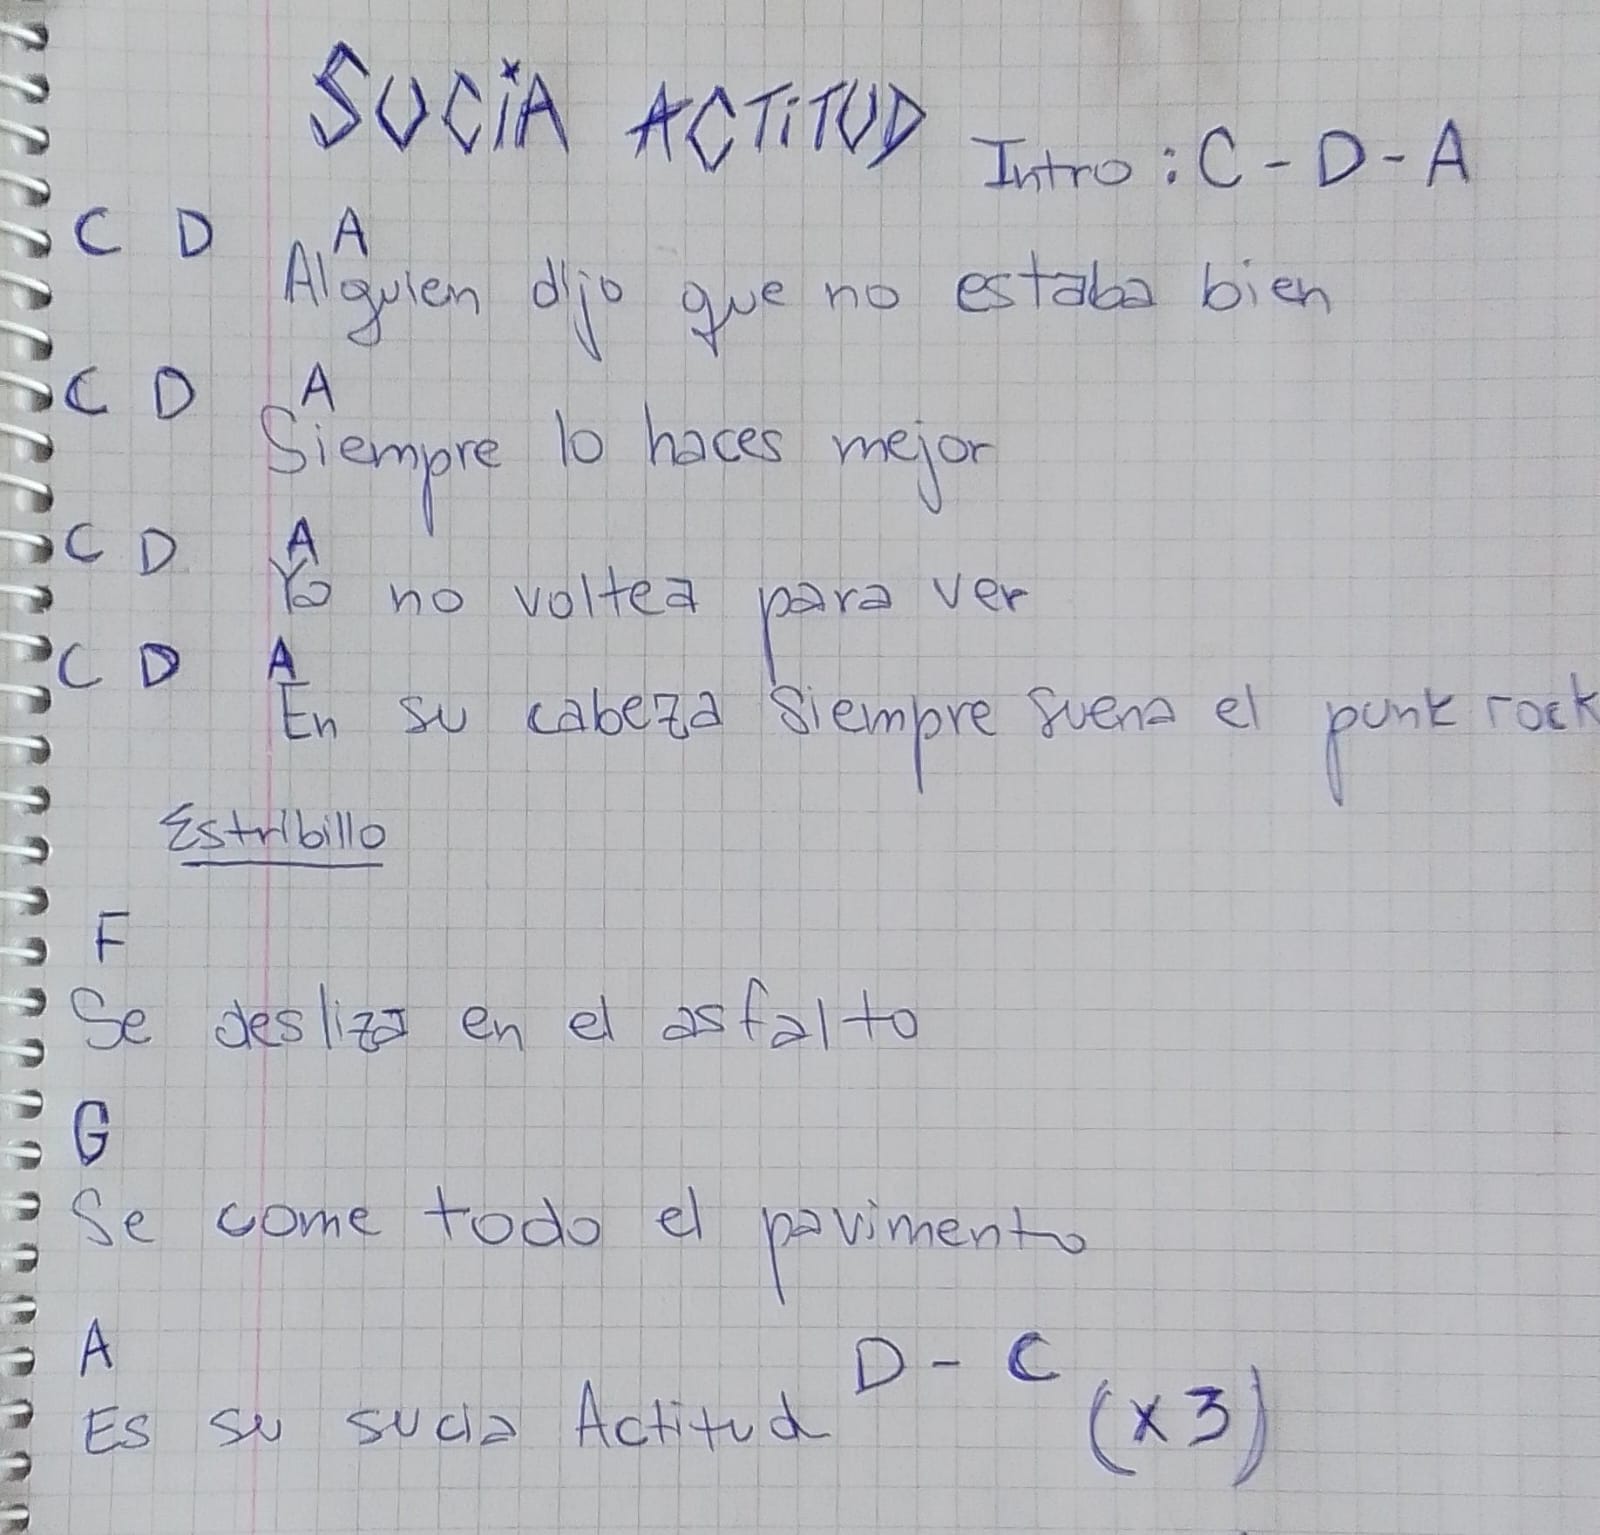 SUCiA ACTiTUD Intro: C - D - A
C D A
Alguien dijo que no estaba bien
C D A
Siempre lo haces mejor
C D A
Ya no voltea para ver
C D A
En su cabeza siempre suena el punk rock
Estribillo
F
Se desliza en el asfalto
G
Se come todo el pavimento
A D - C
Es su sucia Actitud (x3)